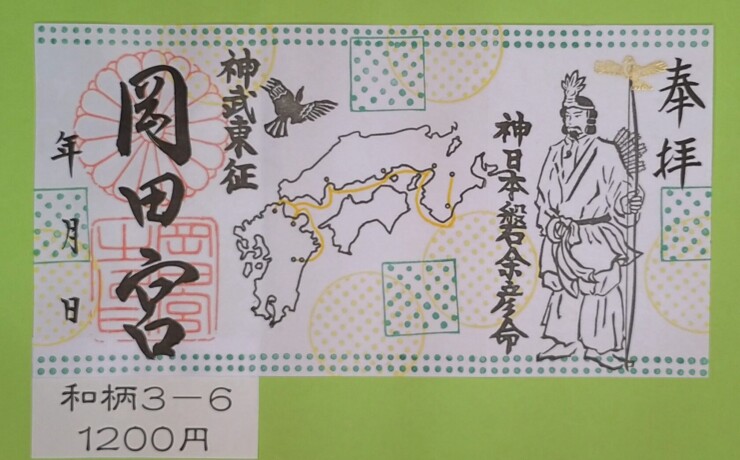 奉拝
神日本磐余彦命
神武東征
岡田宮
年 月 日
岡田宮
和柄3－6
1200円